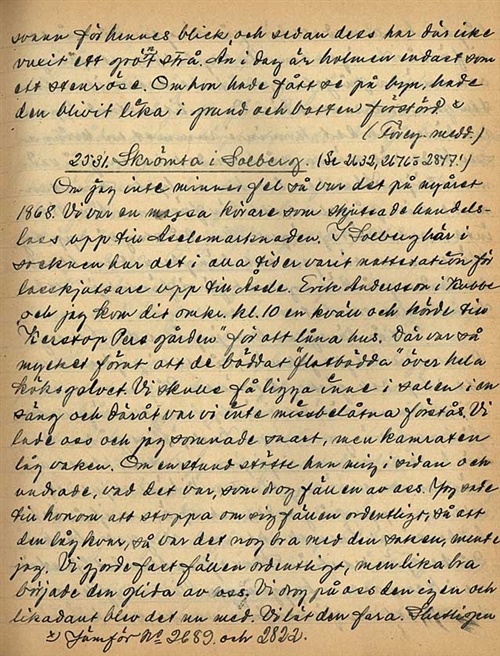 svann för hennes blick, och sedan dess har där icke
vuxit ett grönt strå. Än i dag är holmen endast som
ett stenröse. Om hon hade fått se på byn, hade
den blivit lika i grund och botten förstörd x
(Föreg. medd.)
2531. Skrömta i Solberg. (Se 2632, 2676 2847!)
Om jag inte minnes fel så var det på nyåret
1868. Vi var en massa körare som skjutsade handels-
lass upp till Åselemarknaden. I Solberg här i
socknen har det i alla tider varit nattstation för
lasskjutsare upp till Åsele. Erik Andersson i Kubbe
och jag kom dit omkr. kl. 10 en kväll och körde till
"Kerstop Pers gården" för att låna hus. Där var så
mycket förnt att de bäddat "flatbädda" över hela
köksgolvet. Vi skulle få ligga inne i salen i en
säng och däråt var vi inte missbelåtna förstås. Vi
lade oss och jag somnade snart, men kamraten
låg vaken. Om en stund stötte han mig i sidan och
undrade, vad det var, som drog fällen av oss. Jag sade
till honom att stoppa om sig fällen ordentligt, så att
den låg kvar, så var det nog bra med den saken, mente
jag. Vi gjorde fast fällen ordentligt, men lika bra
började den glida av oss. Vi drog på oss den igen och
likadant blev det nu med. Vi lät den fara. Slutligen
x) Jämför No 2689. och 2822.